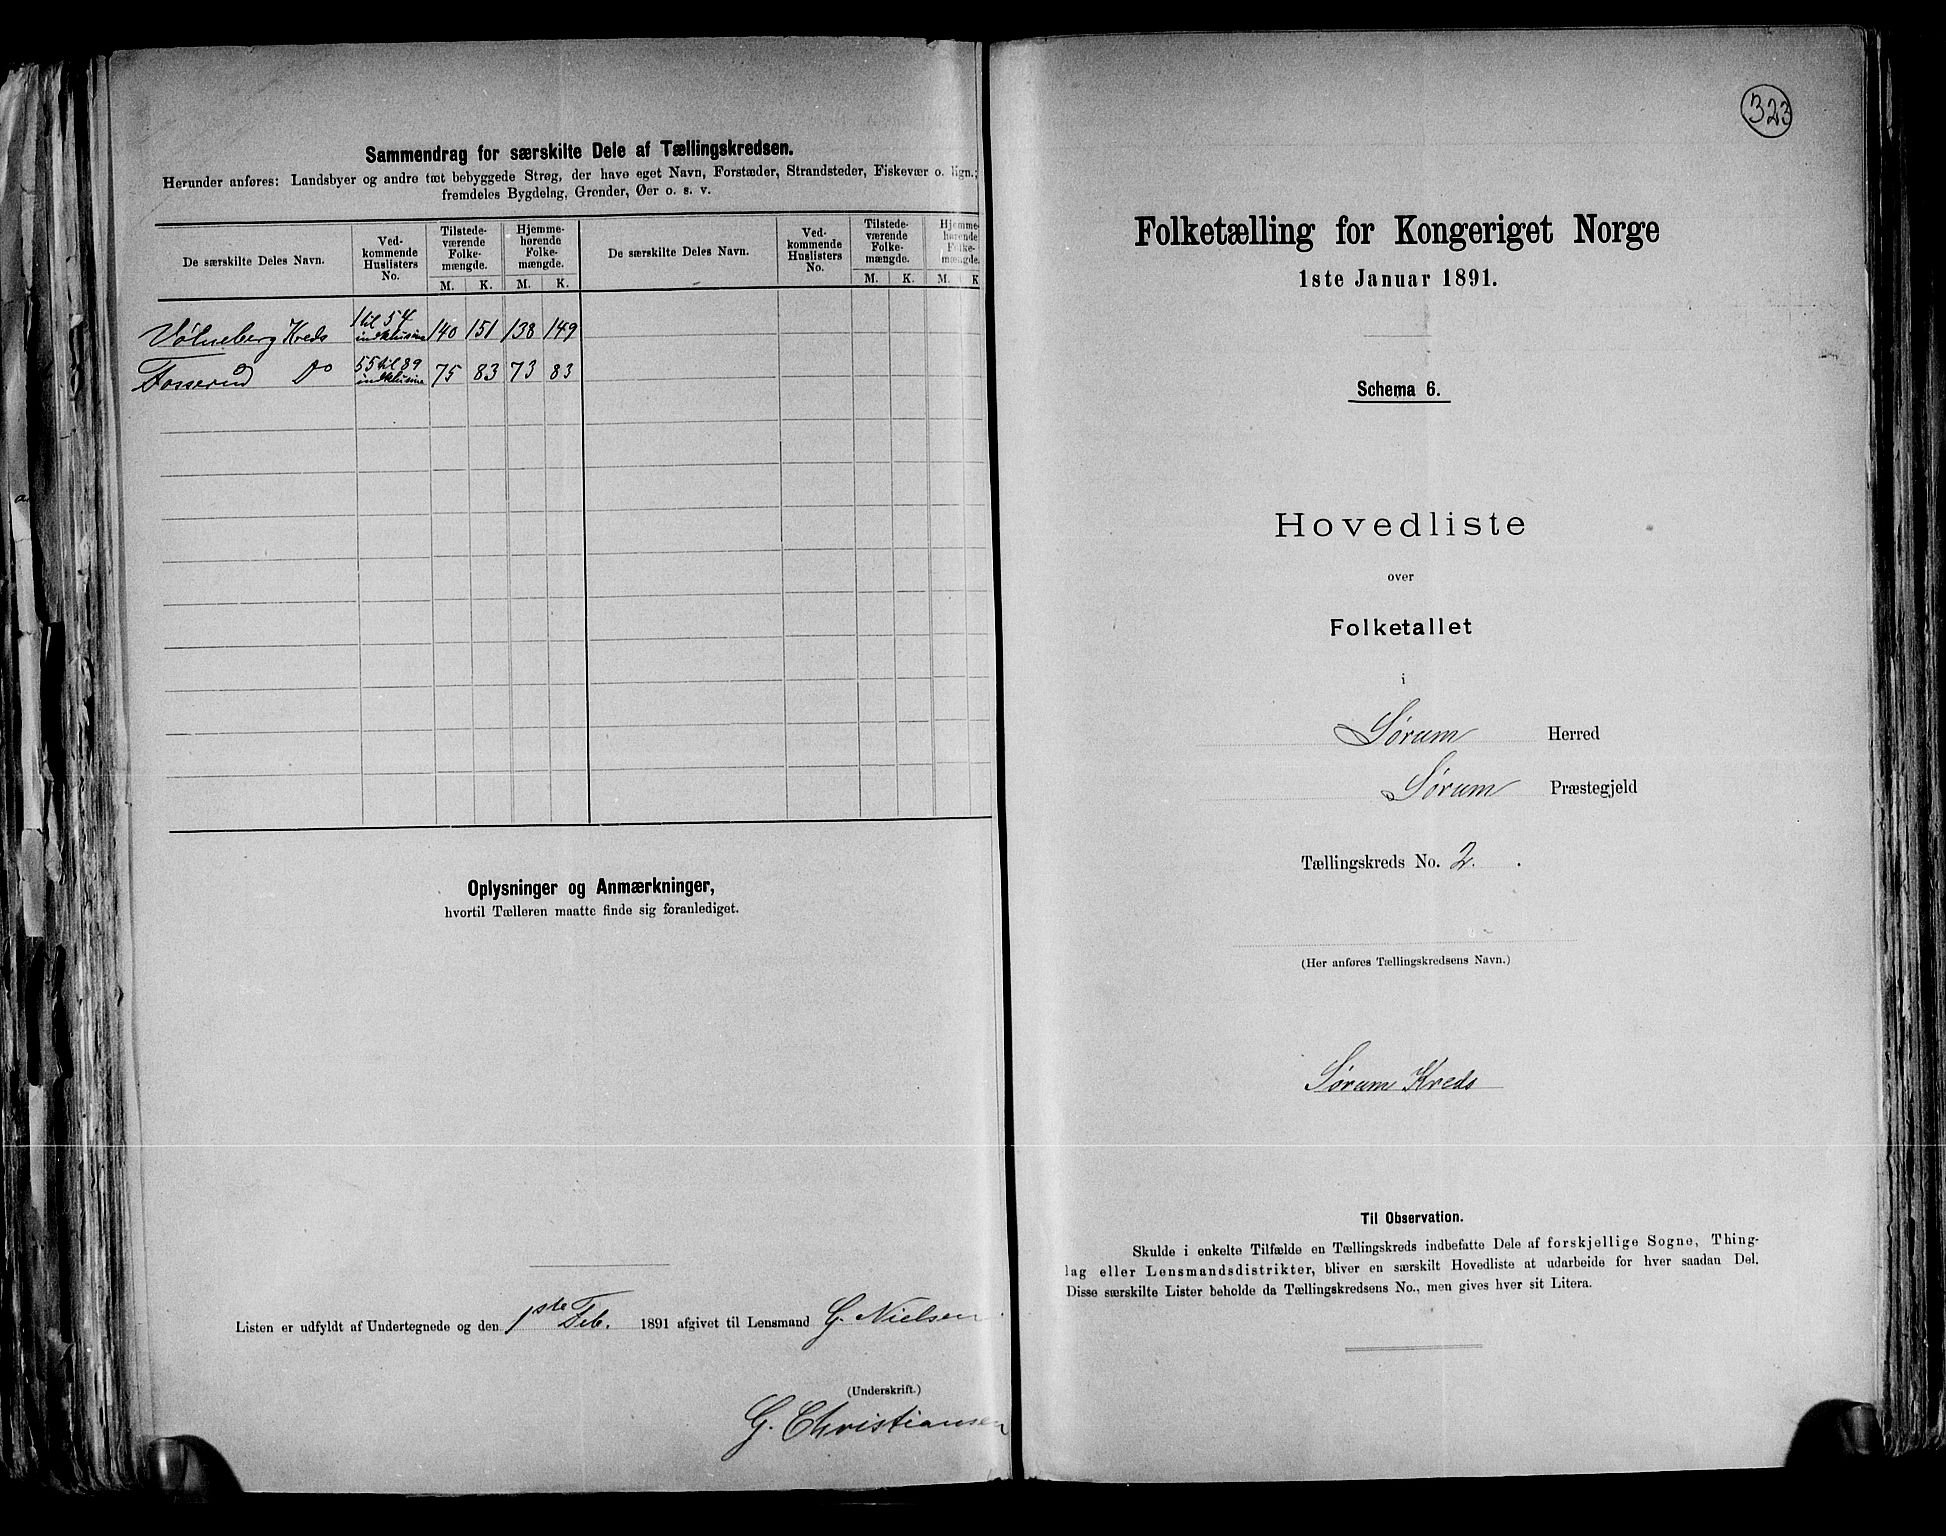 Sammendrag for særskilte Dele af Tællingskredsen.
Herunder anføres: Landsbyer og andre tæt bebyggede Strøg, der have eget Navn, Forstæder, Strandsteder, Fiskevær o. lign.;
fremdeles Bygdelag, Grender, Øer o. s. v.
De særskilte Deles Navn. Ved-kommende Huslisters No. Tilstede-værende Folke-mængde. Hjemme-hørende Folke-mængde. De særskilte Deles Navn. Ved-kommende Huslisters No. Tilstede-værende Folke-mængde. Hjemme-hørende Folke-mængde.
M. K. M. K. M. K. M. K
Vølneberg Kreds 1 til 54 indklusive 140 151 138 149
Fosserud Do 55 til 89 indklusive 75 83 73 83
Oplysninger og Anmærkninger,
hvortil Tælleren maatte finde sig foranlediget.
Listen er udfyldt af Undertegnede og den 1ste Feb. 1891 afgivet til Lensmand G. Nielsen.
(Underskrift.)
G. Christiansen
323
Folketælling for Kongeriget Norge
1ste Januar 1891.
Schema 6.
Hovedliste
over
Folketallet
i
Sørum Herred
Sørum Præstegjeld
Tællingskreds No. 2.
(Her anføres Tællingskredsens Navn.)
Sørum Kreds
Til Observation.
Skulde i enkelte Tilfælde en Tællingskreds indbefatte Dele af forskjellige Sogne, Thing-
lag eller Lensmandsdistrikter, bliver en særskilt Hovedliste at udarbeide for hver saadan Del.
Disse særskilte Lister beholde da Tællingskredsens No., men gives hver sit Litera.